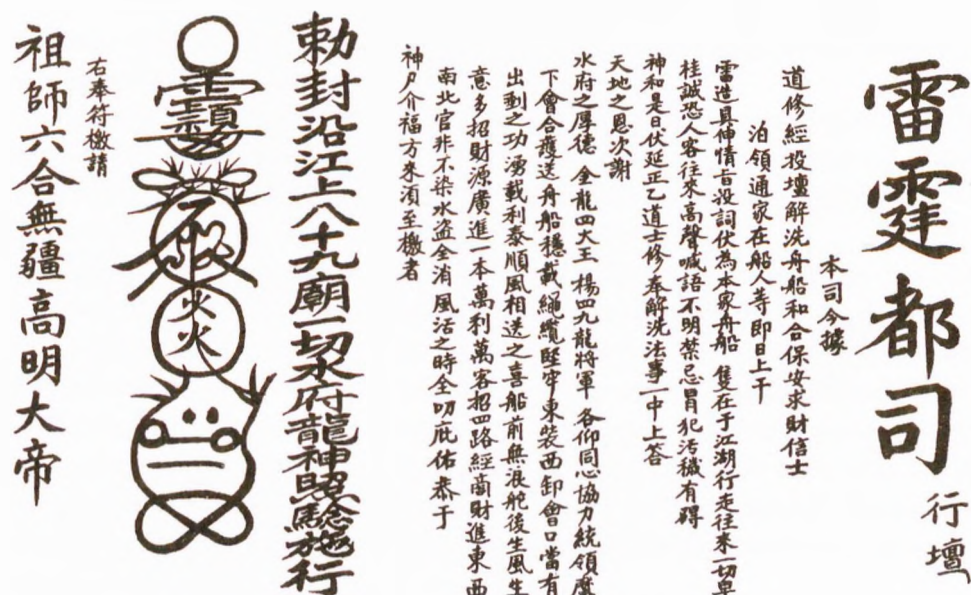 雷霆都司
行壇
本司今據
道修經投壇解洗舟船和合保安求財信士
泊領通家在船人等即日上干
雷造具伸情旨投詞伏為本家舟船 隻在于江湖行走往來一切早
桂誠恐人客往來高聲喊語不明禁忌冒犯污穢有碍
神和是日伏延正乙道士修奉解洗法事一中上答
天地之恩次謝
水府之厚德 金龍四大王 楊四九龍將軍 各仰同心協力統領麾
下會合護送舟船穩載繩纜堅牢東裝西卸會口當有
出剩之功湧載利泰順風相送之喜船前無浪舵後生風生
意多招財源廣進一本萬利萬客招四路經商財進東西
南北官非不染水盜全消風活之時全叨庇佑恭于
神户介福方來須至檄者
勅封沿江上八十九廟一切水府龍神照驗施行
右奉符檄請
祖師六合無疆高明大帝